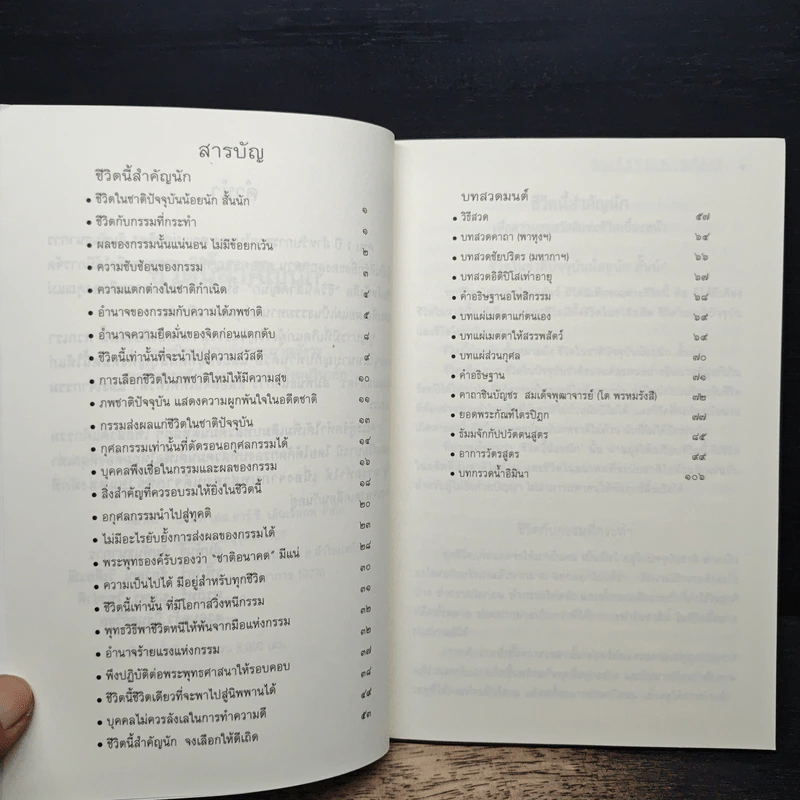 สารบัญ
ชีวิตนี้สำคัญนัก
• ชีวิตในชาติปัจจุบันน้อยนัก สั้นนัก ๑
• ชีวิตกับกรรมที่กระทำ ๑
• ผลของกรรมนั้นแน่นอน ไม่มีข้อยกเว้น ๒
• ความซับซ้อนของกรรม ๔
• ความแตกต่างในชาติกำเนิด ๔
• อำนาจของกรรมกับความได้ภพชาติ ๕
• อำนาจความยึดมั่นของจิตก่อนแตกดับ ๘
• ชีวิตนี้เท่านั้นที่จะนำไปสู่ความสวัสดี ๙
• การเลือกชีวิตในภพชาติใหม่ให้มีความสุข ๑๐
• ภพชาติปัจจุบัน แสดงความผูกพันใจในอดีตชาติ ๑๑
• กรรมส่งผลแก่ชีวิตในชาติปัจจุบัน ๑๓
• กุศลกรรมเท่านั้นที่ตัดรอนอกุศลกรรมได้ ๑๔
• บุคคลพึงเชื่อในกรรมและผลของกรรม ๑๖
• สิ่งสำคัญที่ควรอบรมให้ยิ่งในชีวิตนี้ ๑๘
• อกุศลกรรมนำไปสู่ทุคติ ๒๐
• ไม่มีอะไรยับยั้งการส่งผลของกรรมได้ ๒๓
• พระพุทธองค์รับรองว่า "ชาติอนาคต" มีแน่ ๒๘
• ความเป็นไปได้ มีอยู่สำหรับทุกชีวิต ๓๐
• ชีวิตนี้เท่านั้น ที่มีโอกาสวิ่งหนีกรรม ๓๑
• พุทธวิธีพาชีวิตหนีให้พ้นจากมือแห่งกรรม ๓๒
• อำนาจร้ายแรงแห่งกรรม ๓๒
• พึงปฏิบัติต่อพระพุทธศาสนาให้รอบคอบ ๓๗
• ชีวิตนี้ชีวิตเดียวที่จะพาไปสู่นิพพานได้ ๓๘
• บุคคลไม่ควรลังเลในการทำความดี ๔๙
• ชีวิตนี้สำคัญนัก จงเลือกให้ดีเถิด ๕๓
บทสวดมนต์
• วิธีสวด ๕๗
• บทสวดคาถา (พาหุงฯ) ๖๔
• บทสวดชัยปริตร (มหากาฯ) ๖๖
• บทสวดอิติปิโสเท่าอายุ ๖๗
• คำอธิษฐานอโหสิกรรม ๖๘
• บทแผ่เมตตาแก่ตนเอง ๖๙
• บทแผ่เมตตาให้สรรพสัตว์ ๖๙
• บทแผ่ส่วนกุศล ๗๐
• คำอธิษฐาน ๗๑
• คาถาชินบัญชร สมเด็จพุฒาจารย์ (โต พรหมรังสี) ๗๒
• ยอดพระกัณฑ์ไตรปิฎก ๗๗
• ธัมมจักกัปปวัตตนสูตร ๘๕
• อาการวัตรสูตร ๙๙
• บทกรวดน้ำอิมินา ๑๐๖